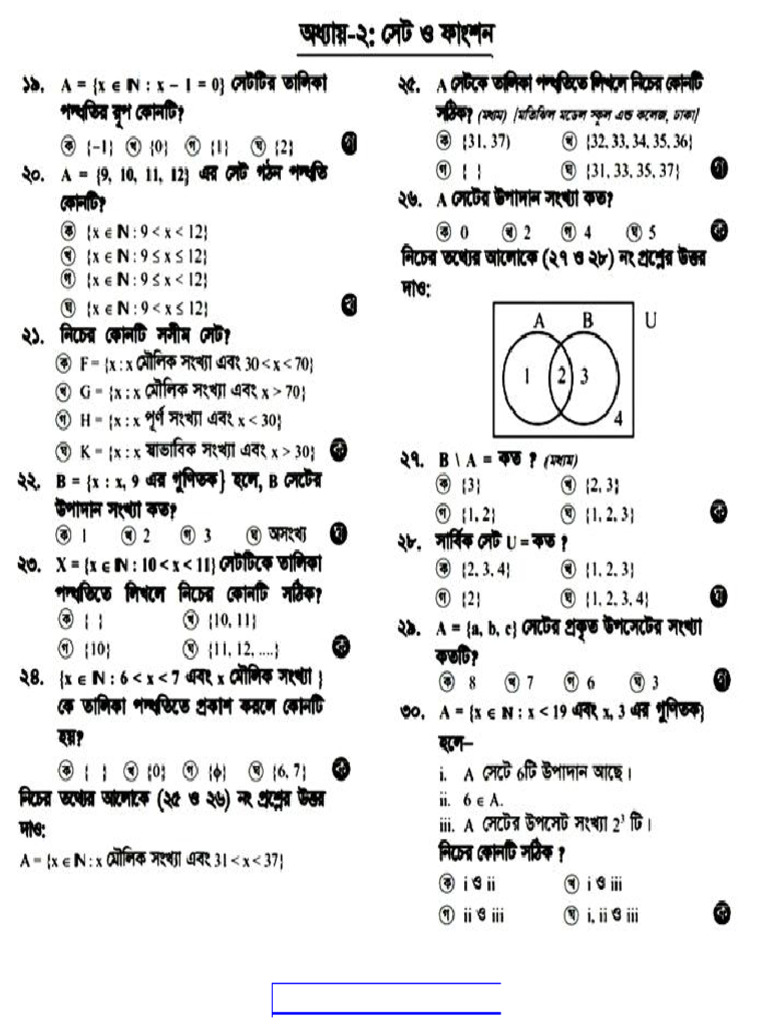 অধ্যায়-২: সেট ও ফাংশন
১৯. A = {x ∈ ℕ : x – 1 = 0} সেটটির তালিকা
পদ্ধতির রূপ কোনটি?
ক {–1} খ {0} গ {1} ঘ {2} গ
২০. A = {9, 10, 11, 12} এর সেট গঠন পদ্ধতি
কোনটি?
ক {x ∈ N : 9 < x < 12}
খ {x ∈ N : 9 ≤ x ≤ 12}
গ {x ∈ N : 9 ≤ x < 12}
ঘ {x ∈ N : 9 < x ≤ 12}
২১. নিচের কোনটি সসীম সেট?
ক F = {x : x মৌলিক সংখ্যা এবং 30 < x < 70}
খ G = {x : x মৌলিক সংখ্যা এবং x > 70}
গ H = {x : x পূর্ণ সংখ্যা এবং x < 30}
ঘ K = {x : x স্বাভাবিক সংখ্যা এবং x > 30} ক
২২. B = {x : x, 9 এর গুণিতক} হলে, B সেটের
উপাদান সংখ্যা কত?
ক 1 খ 2 গ 3 ঘ অসংখ্য
২৩. X = {x ∈ ℕ : 10 < x < 11} সেটটিকে তালিকা
পদ্ধতিতে লিখলে নিচের কোনটি সঠিক?
ক { } খ {10, 11}
গ {10} ঘ {11, 12, ....} ক
২৪. {x ∈ ℕ : 6 < x < 7 এবং x মৌলিক সংখ্যা }
কে তালিকা পদ্ধতিতে প্রকাশ করলে কোনটি
হয়?
ক { } খ {0} গ {ϕ} ঘ {6, 7} ক
নিচের তথ্যের আলোকে (২৫ ও ২৬) নং প্রশ্নের উত্তর
দাও:
A = {x ∈ ℕ : x মৌলিক সংখ্যা এবং 31 < x < 37}
২৫. A সেটকে তালিকা পদ্ধতিতে লিখলে নিচের কোনটি
সঠিক? (মধ্যম) [মতিঝিল মডেল স্কুল এন্ড কলেজ, ঢাকা]
ক {31, 37) খ {32, 33, 34, 35, 36}
গ { } ঘ {31, 33, 35, 37} গ
২৬. A সেটের উপাদান সংখ্যা কত?
ক 0 খ 2 গ 4 ঘ 5 ক
নিচের তথ্যের আলোকে (২৭ ও ২৮) নং প্রশ্নের উত্তর
দাও:
A B U
1 2 3
4
২৭. B \ A = কত ? (মধ্যম)
ক {3} খ {2, 3}
গ {1, 2} ঘ {1, 2, 3} ক
২৮. সার্বিক সেট U = কত ?
ক {2, 3, 4} খ {1, 2, 3}
গ {2} ঘ {1, 2, 3, 4} ঘ
২৯. A = {a, b, c} সেটের প্রকৃত উপসেটের সংখ্যা
কতটি?
ক 8 খ 7 গ 6 ঘ 3
৩০. A = {x ∈ ℕ : x < 19 এবং x, 3 এর গুণিতক}
হলে–
i. A সেটে 6টি উপাদান আছে।
ii. 6 ∈ A.
iii. A সেটের উপসেট সংখ্যা 2³ টি।
নিচের কোনটি সঠিক ?
ক i ও ii খ i ও iii
গ ii ও iii ঘ i, ii ও iii ক